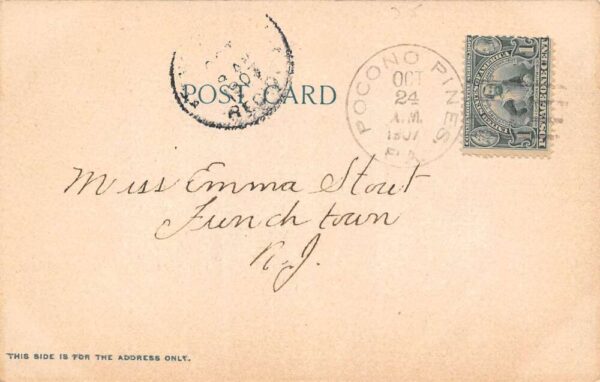 POST CARD
REC'D
POCONO PINES
OCT
24
A.M.
1907
PA.
POSTAGE ONE CENT
1
1
Miss Emma Stout
Frenchtown
N.J.
THIS SIDE IS FOR THE ADDRESS ONLY.